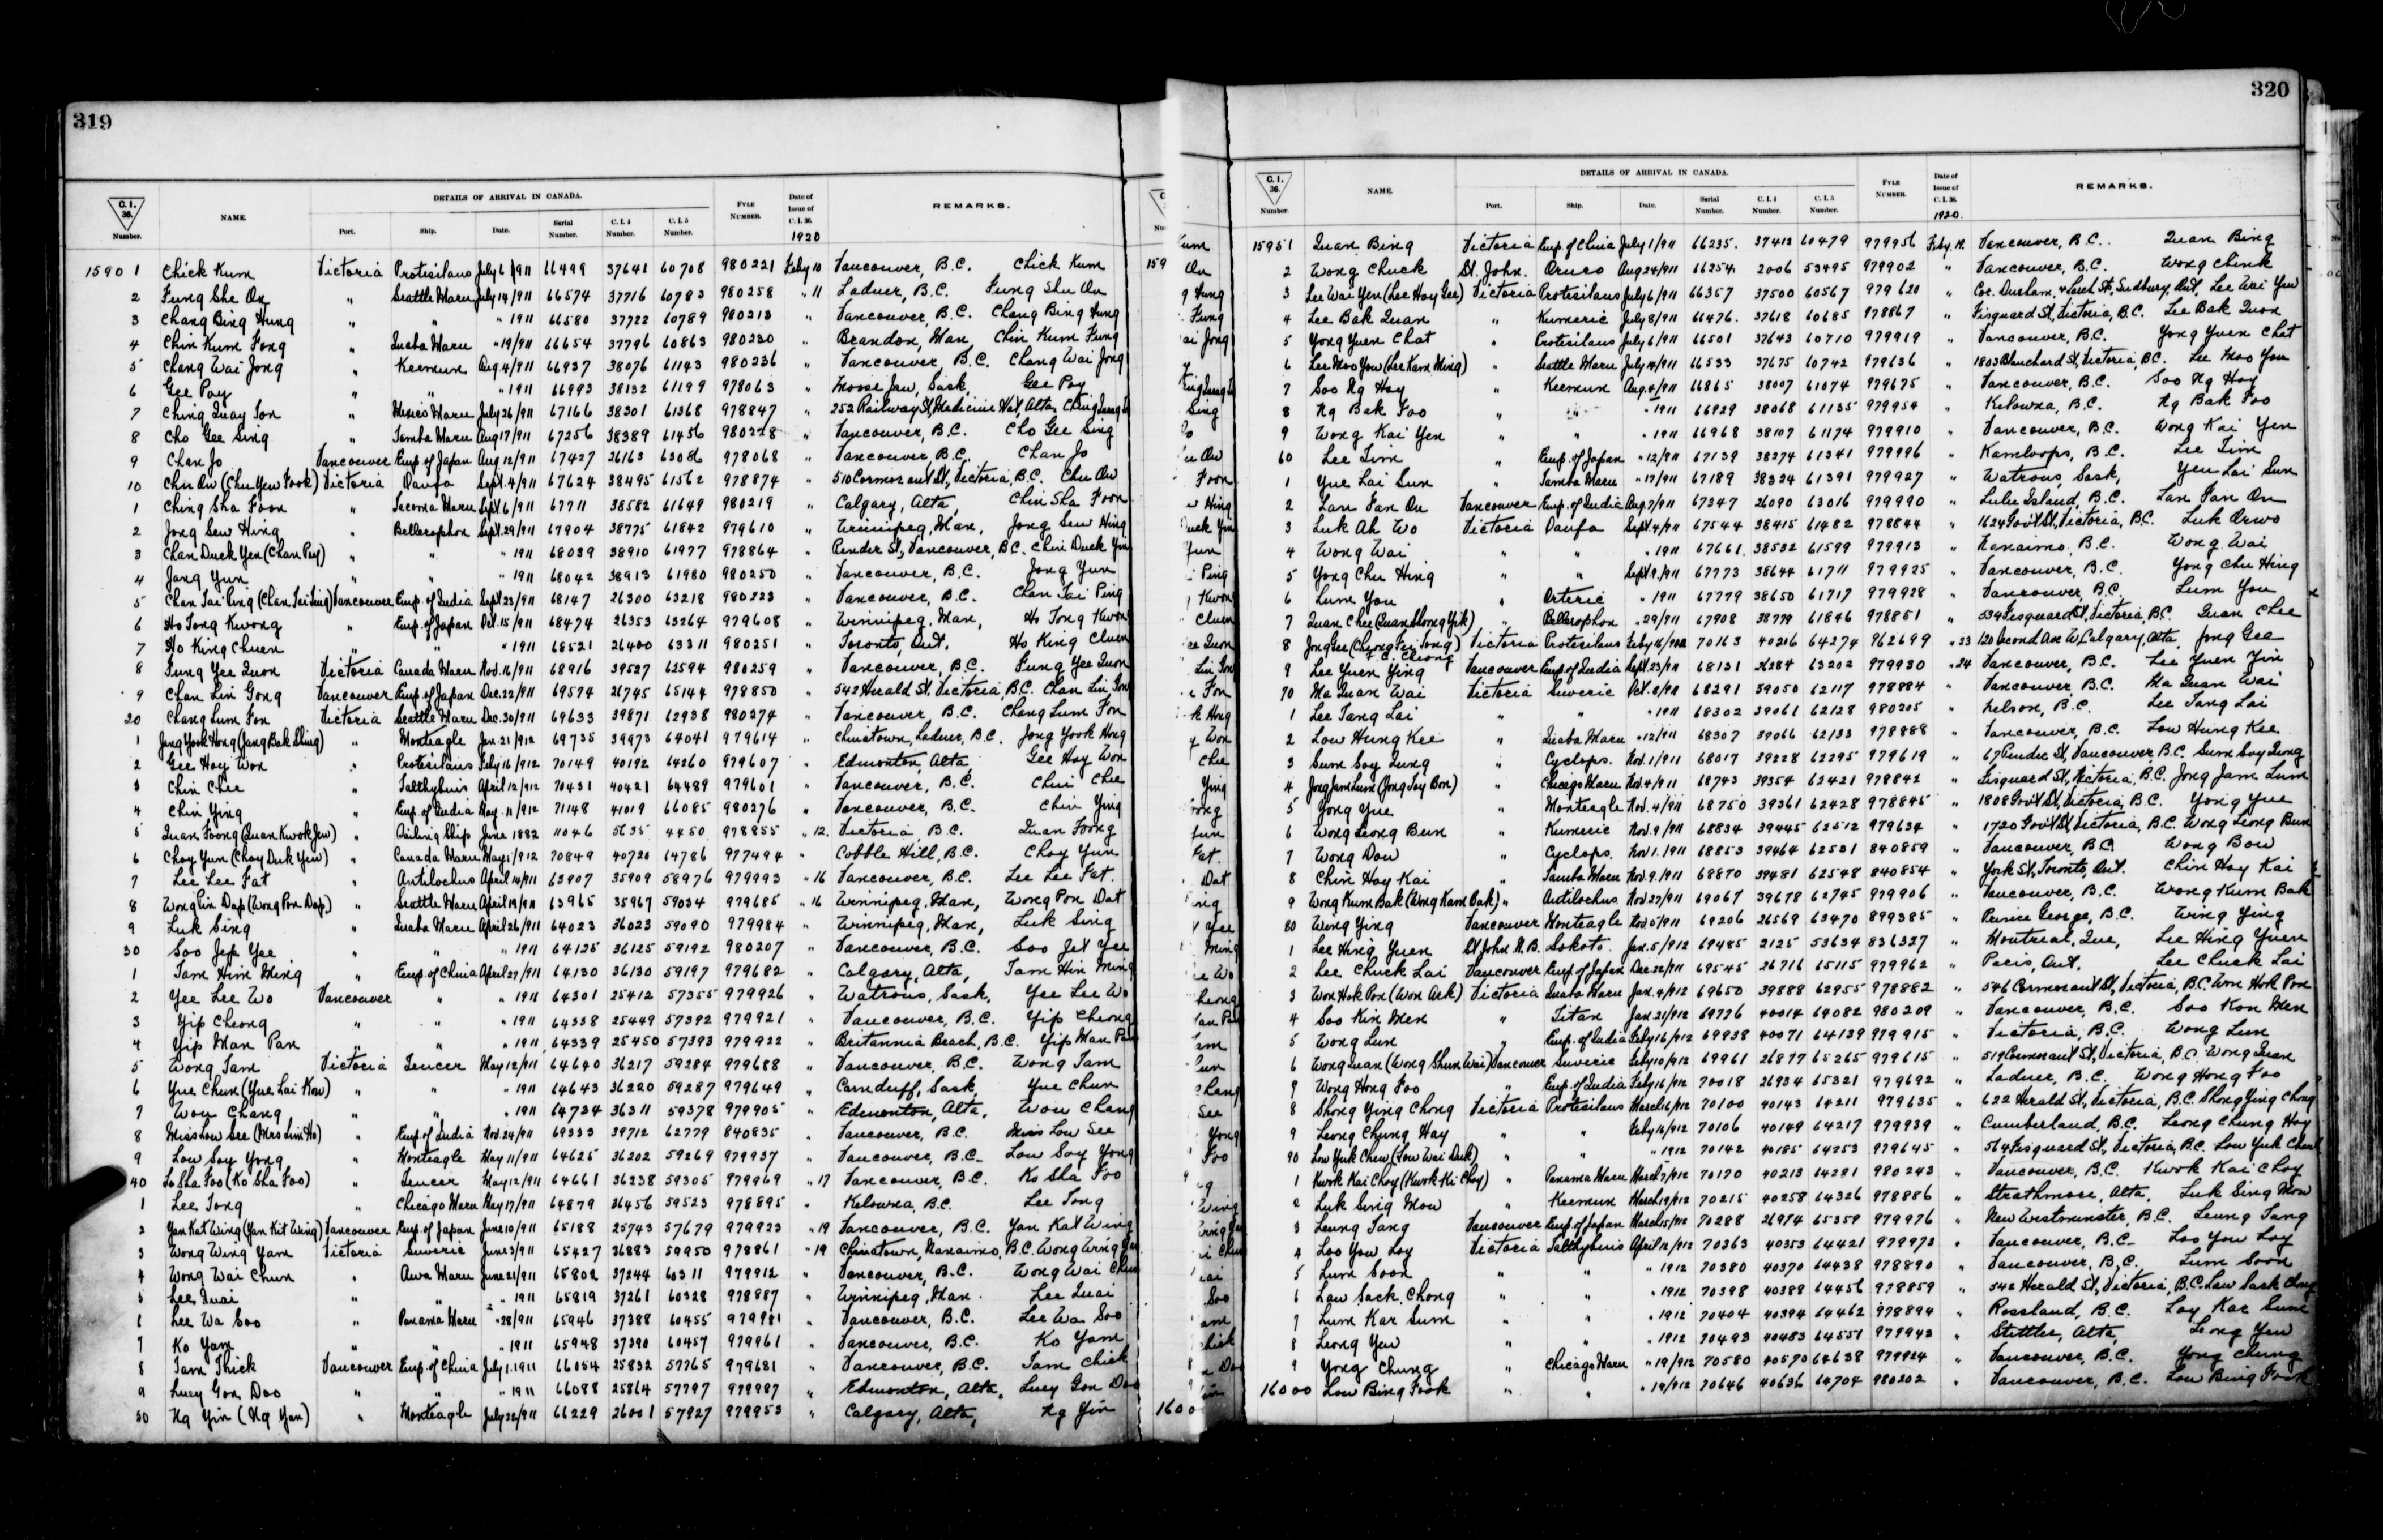 319
C.I. 36. Number. NAME. DETAILS OF ARRIVAL IN CANADA. Port. Ship. Date. Serial Number. C.I.4 Number. C.I.5 Number. FYLE NUMBER. Date of Issue of C.I. 36. 1920 REMARKS.
15901 Chick Kum Victoria Protesilaus July 6/911 66499 37641 60708 980221 Feby 10 Vancouver, B.C. Chick Kum
2 Fung She On " Seattle Maru July 14/911 66574 37716 60783 980258 " 11 Ladner, B.C. Fung Shu On
3 Chang Bing Hung " " " 1911 66580 37722 60789 980213 " Vancouver, B.C. Chang Bing Hung
4 Chin Kum Fong " Inaba Maru " 19/911 66654 37796 60863 980230 " Brandon, Man, Chin Kum Fung
5 Chang Wai Jong " Keemun Aug. 4/911 66937 38076 61143 980236 " Vancouver, B.C. Chang Wai Jong
6 Gee Poy " " " 1911 66993 38132 61199 978063 " Moose Jaw, Sask, Gee Poy
7 Ching Quay Ton " Mexico Maru July 26/911 67166 38301 61368 978847 " 252 Railway St, Medicine Hat, Alta,
8 Cho Gee Sing " Tamba Maru Aug 17/911 67256 38389 61456 980228 " Vancouver, B.C. Cho Gee Sing
9 Chan Jo Vancouver Emp. of Japan Aug 12/911 67427 26163 63086 978068 " Vancouver, B.C. Chan Jo
10 Chu On (Chu Yew Fook) Victoria Oanfa Sept. 4/911 67624 38495 61562 978874 " 510 Cormorant St, Victoria, B.C. Chu On
1 Ching Sha Foon " Tacoma Maru Sept 6/911 67711 38582 61649 980219 " Calgary, Alta, Chin Sha Foon
2 Jong Sew Hing " Bellerophon Sept. 29/911 67904 38775 61842 979610 " Winnipeg, Man, Jong Sew Hing
3 Chan Duck Yen (Chan Puy) " " " 1911 68039 38910 61977 978864 " Pender St, Vancouver, B.C. Chin Duck Yen
4 Jang Yun " " " 1911 68042 38913 61980 980250 " Vancouver, B.C. Jong Yun
5 Chan Tai Ping (Chan Tai Sing) Vancouver Emp. of India Sept 23/911 68147 26300 63218 980223 " Vancouver, B.C. Chan Tai Ping
6 Ho Tong Kwong " Emp. of Japan Oct. 15/911 68474 26353 63264 979608 " Winnipeg, Man, Ho Tong Kwon
7 Ho King Chuen " " " 1911 68521 26400 63311 980251 " Toronto, Ont. Ho King Chuen
8 Fung Yee Quon Victoria Canada Maru Nov. 16/911 68916 39527 62594 980259 " Vancouver, B.C. Fung Yee Quon
9 Chan Lin Gong Vancouver Emp. of Japan Dec. 22/911 69574 26745 65144 978850 " 542 Herald St, Victoria, B.C. Chan Lin Gon
20 Chang Lum Fon Victoria Seattle Maru Dec. 30/911 69633 39871 62938 980274 " Vancouver B.C. Chang Lum Fon
1 Jang Yook Hong (Jang Bak Shing) " Monteagle Jan. 21/912 69735 39973 64041 979614 " Chinatown, Ladner, B.C. Jong Yook Hong
2 Gee Hoy Won " Protesilaus Feby 16/912 70149 40192 64260 979607 " Edmonton, Alta, Gee Hoy Won
3 Chin Chee " Talthybius April 12/912 70431 40421 64489 979601 " Vancouver, B.C. Chin Chee
4 Chin Ying " Emp of India May. 11/912 71148 41019 66085 980276 " Vancouver, B.C. Chin Ying
5 Quan Foong (Quan Kwok Jew) " Sailing Ship June 1882 11046 5635 4450 978855 " 12. Victoria B.C. Quan Foong
6 Choy Yun (Choy Duk Yew) " Canada Maru May 1/912 70849 40720 64786 977494 " Cobble Hill, B.C. Choy Yun
7 Lee Lee Fat " Antilochus April 14/911 63907 35909 58976 979993 " 16 Vancouver, B.C. Lee Lee Fat.
8 Wong Pin Dap (Wong Pon Dap) " Seattle Maru April 19/911 63965 35967 59034 979685 " 16 Winnipeg, Man, Wong Pon Dat
9 Luk Sing " Inaba Maru April 26/911 64023 36023 59090 979984 " Winnipeg, Man, Luk Sing
30 Soo Jip Yee " " " 1911 64125 36125 59192 980207 " Vancouver, B.C. Soo Jit Yee
1 Tam Him Ming " Emp. of China April 27/911 64130 36130 59197 979682 " Calgary, Alta, Tam Hin Ming
2 Yee Lee Wo Vancouver " " 1911 64301 25412 57355 979926 " Watrous, Sask, Yee Lee Wo
3 Yip Cheong " " " 1911 64338 25449 57392 979921 " Vancouver, B.C. Yip Cheong
4 Yip Man Pan " " " 1911 64339 25450 57393 979922 " Britannia Beach, B.C. Yip Man Pan
5 Wong Tam Victoria Teucer May 12/911 64640 36217 59284 979688 " Vancouver, B.C. Wong Tam
6 Yue Chun (Yue Lai Kow) " " " 1911 64643 36220 59287 979649 " Carnduff, Sask, Yue Chun
7 Wou Chang " " " 1911 64734 36311 59378 979905 " Edmonton, Alta, Wou Chang
8 Miss Low See (Mrs Lim Ho) " Emp of India Nov. 24/911 69333 39712 62779 840835 " Vancouver, B.C. Miss Low See
9 Low Soy Yong " Monteagle May 11/911 64625 36202 59269 979937 " Vancouver, B.C. Low Soy Yong
40 So Sha Foo (Ko Sha Foo) " Teucer May 12/911 64661 36238 59305 979969 " 17 Vancouver, B.C. Ko Sha Foo
1 Lee Tong " Chicago Maru May 17/911 64879 36456 59523 978895 " Kelowna, B.C. Lee Tong
2 Yan Kat Wing (Yan Kit Wing) Vancouver Emp. of Japan June 10/911 65188 25743 57679 979923 " 19 Vancouver, B.C. Yan Kat Wing
3 Wong Wing Yam Victoria Suveric June 3/911 65427 36883 59950 978861 " 19 Chinatown, Nanaimo, B.C. Wong Wing Yam
4 Wong Wai Chun " Awa Maru June 21/911 65802 37244 60311 979912 " Vancouver, B.C. Wong Wai Chun
5 Lee Quai " " " 1911 65819 37261 60328 978887 " Winnipeg, Man. Lee Quai
6 Lee Wa Soo " Panama Maru " 28/911 65946 37388 60455 979981 " Vancouver, B.C. Lee Wa Soo
7 Ko Yam " " " 1911 65948 37390 60457 979961 " Vancouver, B.C. Ko Yam
8 Tam Thick Vancouver Emp. of China July 1. 1911 66054 25832 57765 979681 " Vancouver, B.C. Tam Chick
9 Luey Gon Doo " " " 1911 66088 25864 57797 979987 " Edmonton, Alta, Luey Gon Doo
50 Ng Yin (Ng Yan) " Monteagle July 22/911 66229 26001 57927 979953 " Calgary, Alta, Ng Yin
320
C.I. 36. Number. NAME. DETAILS OF ARRIVAL IN CANADA. Port. Ship. Date. Serial Number. C.I.4 Number. C.I.5 Number. FYLE NUMBER. Date of Issue of C.I. 36. 1920. REMARKS.
15951 Quan Bing Victoria Emp. of China July 1/911 66235. 37412 60479 979956 Feby. 19. Vancouver, B.C. Quan Bing
2 Wong Chuck St. John. Oruro Aug 24/911 66254 2006 53495 979902 " Vancouver, B.C. Wong Chuck
3 Lee Wai Yen (Lee Hoy Gee) Victoria Protesilaus July 6/911 66357 37500 60567 979620 " Cor. Durham, & Larch St, Sudbury, Ont, Lee Wai Yen
4 Lee Bak Quan " Kumeric July 8/911 66476. 37618 60685 978867 " Fisguard St, Victoria, B.C. Lee Bak Quon
5 Yong Yuen Chat " Protesilaus July 6/911 66501 37643 60710 979919 " Vancouver, B.C. Yong Yuen Chat
6 Lee Moo You (Lee Kam Ming) " Seattle Maru July 14/911 66533 37675 60742 979636 " 1803 Blanchard St, Victoria, B.C. Lee Moo You
7 Soo Ng Hoy " Keemun Aug. 4/911 66865 38007 61074 979675 " Vancouver, B.C. Soo Ng Hoy
8 Ng Bak Foo " " " 1911 66929 38068 61135 979954 " Kelowna, B.C. Ng Bak Foo
9 Wong Kai Yen " " " 1911 66968 38107 61174 979910 " Vancouver, B.C. Wong Kai Yen
60 Lee Tim " Emp. of Japan " 12/911 67139 38274 61341 979996 " Kamloops, B.C. Lee Tim
1 Yue Lai Sun " Tamba Maru " 17/911 67189 38324 61391 979927 " Watrous, Sask, Yeu Lai Sun
2 Lan Fan On Vancouver Emp. of India Aug. 7/911 67347 26090 63016 979990 " Lulu Island, B.C. Lan Fan On
3 Luk Ah Wo Victoria Oanfa Sept. 4/911 67544 38415 61482 978844 " 1624 Gov't St, Victoria, B.C. Luk Orwo
4 Wong Wai " " " 1911 67661. 38532 61599 979913 " Nanaimo, B.C. Wong Wai
5 Yong Chu Hing " " Sept. 9/911 67773 38644 61711 979925 " Vancouver, B.C. Yong Chu Hing
6 Lum You " Orteric " 1911 67779 38650 61717 979928 " Vancouver, B.C. Lum You
7 Quan Chee (Quan Shong Yik) " Bellerophon " 29/911 67908 38779 61846 978851 " 534 Fisguard St, Victoria, B.C. Quan Chee
8 Jong Gee (Cheong Fei Tong) Victoria Protesilaus Feby 16/912 70163 40206 64274 962699 " 23 120 Second Ave W, Calgary, Alta, Jong Gee
9 Lee Yuen Ying Vancouver Emp of India Sept. 23/911 68131 26284 63202 979930 " 24 Vancouver, B.C. Lee Yuen Yin
70 Ma Quan Wai Victoria Suveric Oct. 8/911 68291 39050 62117 978884 " Vancouver, B.C. Ma Quan Wai
1 Lee Tang Lai " " " 1911 68302 39061 62128 980205 " Nelson, B.C. Lee Tang Lai
2 Low Hung Kee " Inaba Maru " 12/911 68307 39066 62133 978888 " Vancouver, B.C. Low Hung Kee
3 Sum Soy Lung " Cyclops. Nov. 1/911 68017 39228 62295 979619 " 67 Pender St, Vancouver, B.C. Sum Soy Leong
4 Jong Jam Lum (Jong Toy Bon) " Chicago Maru Nov. 4/911 68743 39354 62421 978842 " Fisguard St, Victoria, B.C. Jong Jam Lum
5 Yong Yue " Monteagle Nov. 4/911 68750 39361 62428 978845 " 1808 Gov't St, Victoria, B.C. Yong Yue
6 Wong Leong Bun " Kumeric Nov. 9/911 68834 39445 62512 979634 " 1720 Gov't St, Victoria, B.C. Wong Leong Bun
7 Wong Dow " Cyclops. Nov 1. 1911 68853 39464 62531 840859 " Vancouver, B.C. Wong Bow
8 Chin Hoy Kai " Tamba Maru Nov. 9. 1911 68870 39481 62548 840854 " York St, Toronto, Ont. Chin Hoy Kai
9 Wong Kum Bak (Wong Kam Bak) " Antilochus Nov 27/911 69067 39678 62745 979906 " Vancouver, B.C. Wong Kum Bak
80 Wing Ying Vancouver Monteagle Nov 5/911 69206 26569 63470 899385 " Prince George, B.C. Wing Ying
1 Lee Hing Yuen St John N.B. Sokoto. Jan. 5/912 69485 2125 53634 836327 " Montreal, Que, Lee Hing Yuen
2 Lee Chuck Lai Vancouver Emp of Japan Dec 22/911 69545 26716 65115 979962 " Paris, Ont. Lee Chuck Lai
3 Won Hok Pon (Won Ark) Victoria Inaba Maru Jan. 4/912 69650 39888 62955 978882 " 546 Cormorant St, Victoria, B.C. Won Hok Pon
4 Soo Kin Men " Titan Jan 21/912 69776 40014 64082 980209 " Vancouver, B.C. Soo Kon Men
5 Wong Lun " Emp. of India Feby 16/912 69938 40071 64139 979915 " Victoria, B.C. Wong Lun
6 Wong Quan (Wong Shun Wai) Vancouver Suveric Feby 10/912 69961 26877 65265 979615 " 519 Cormorant St, Victoria, B.C. Wong Quan
7 Wong Hong Foo " Emp. of India Feby 16/912 70018 26934 65321 979692 " Ladner, B.C. Wong Hong Foo
8 Shong Ying Chong Victoria Protesilaus March 16/912 70100 40143 64211 979635 " 622 Herald St, Victoria, B.C. Shong Ying Chong
9 Leong Chung Hay " " Feby 16/912 70106 40149 64217 979939 " Cumberland, B.C. Leong Chung Hoy
90 Low Yuk Chew (Low Wai Duk) " " " 1912 70142 40185 64253 979645 " 564 Fisguard St, Victoria, B.C. Low Yuk Chew
1 Kwok Kai Choy (Kwok Ki Choy) " Panama Maru March 7/912 70170 40213 64281 980243 " Vancouver, B.C. Kwok Kai Choy
2 Luk Sing Mow " Keemun March 19/912 70215 40258 64326 978886 " Strathmore, Alta, Luk Sing Mow
3 Leung Tang Vancouver Emp of Japan March 15/912 70288 26974 65359 979976 " New Westminster, B.C. Leung Tang
4 Loo You Loy Victoria Talthybius April 12/912 70363 40353 64421 979973 " Vancouver, B.C. Loo You Loy
5 Lum Soon " " " 1912 70380 40370 64438 978890 " Vancouver, B.C. Lum Soon
6 Low Sack Chong " " " 1912 70398 40388 64456 978859 " 542 Herald St, Victoria, B.C. Low Sack Chong
7 Lum Kar Sum " " " 1912 70404 40394 64462 978894 " Rossland, B.C. Loy Kar Sum
8 Leong Yew " " " 1912 70493 40483 64551 979943 " Stettler, Alta, Leong Yew
9 Yong Chung " Chicago Maru " 19/912 70580 40570 64638 979924 " Vancouver, B.C. Yong Chung
16000 Low Bing Fook " " " 19/912 70646 40636 64704 980202 " Vancouver, B.C. Low Bing Fook